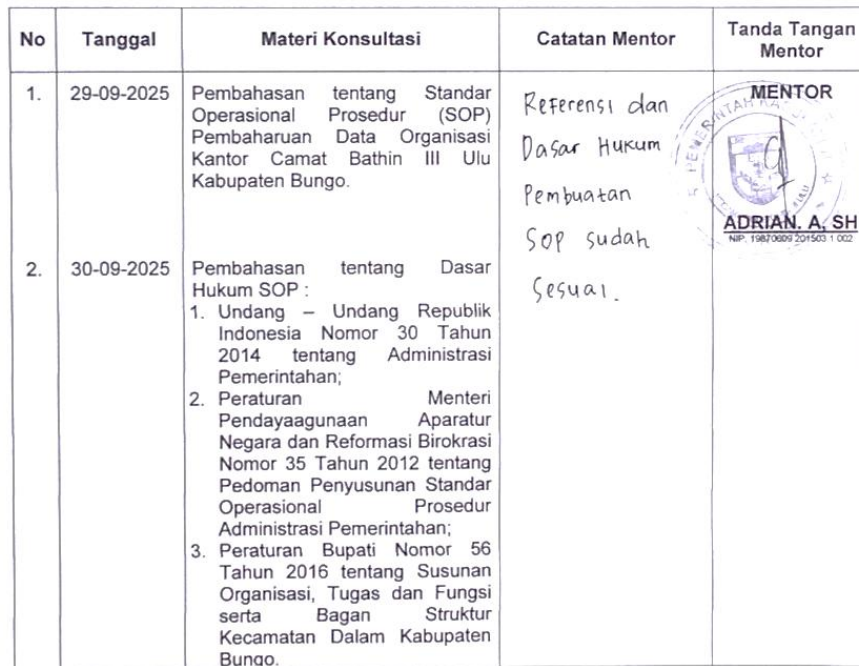 No
Tanggal
Materi Konsultasi
Catatan Mentor
Tanda Tangan
Mentor
1.
29-09-2025
Pembahasan tentang Standar
Operasional Prosedur (SOP)
Pembaharuan Data Organisasi
Kantor Camat Bathin III Ulu
Kabupaten Bungo.
Referensi dan
Dasar Hukum
Pembuatan
SOP sudah
Sesuai.
MENTOR
ADRIAN. A, SH
NIP. 19870609 201503 1 002
2.
30-09-2025
Pembahasan tentang Dasar
Hukum SOP :
1. Undang – Undang Republik
Indonesia Nomor 30 Tahun
2014 tentang Administrasi
Pemerintahan;
2. Peraturan Menteri
Pendayaagunaan Aparatur
Negara dan Reformasi Birokrasi
Nomor 35 Tahun 2012 tentang
Pedoman Penyusunan Standar
Operasional Prosedur
Administrasi Pemerintahan;
3. Peraturan Bupati Nomor 56
Tahun 2016 tentang Susunan
Organisasi, Tugas dan Fungsi
serta Bagan Struktur
Kecamatan Dalam Kabupaten
Bungo.